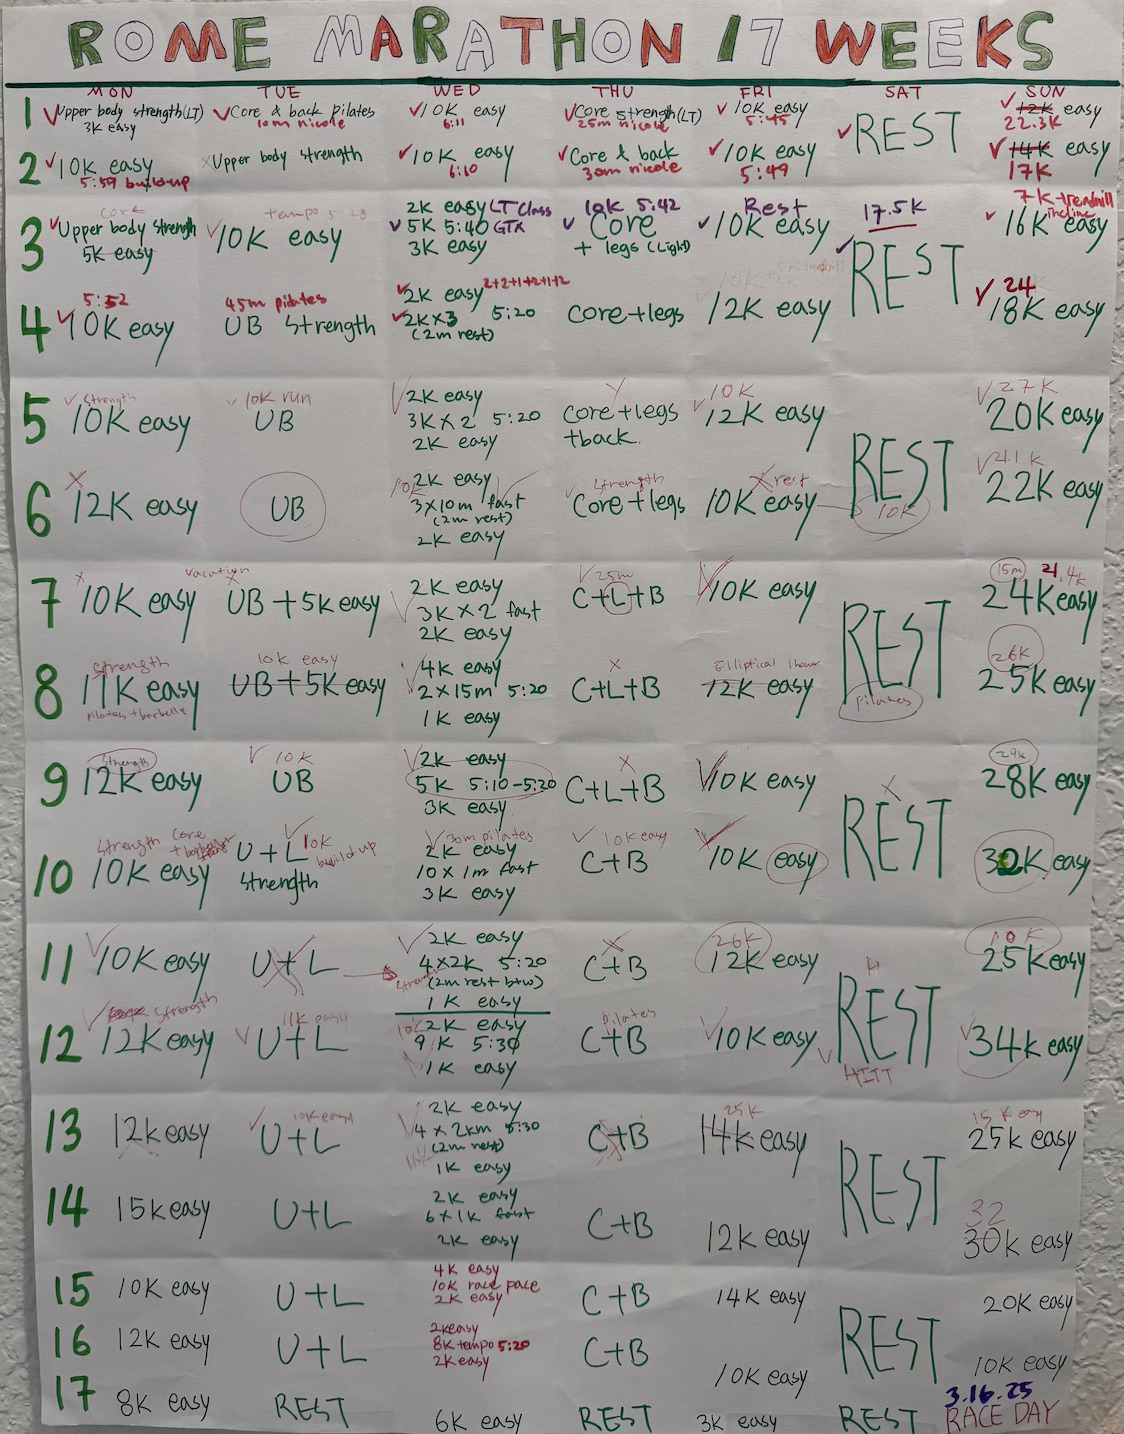 ROME MARATHON 17 WEEKS
MON TUE WED THU FRI SAT SUN
1
✓Upper body strength(LT)
3K easy
✓Core & back pilates
10m nicole
✓10K easy
6:11
✓Core strength(LT)
25m nicole
✓10K easy
5:45
✓REST
✓12K easy
22.3K
2
✓10K easy
5:59 build-up
×Upper body strength
✓10K easy
6:10
✓Core & back
30m nicole
✓10K easy
5:49
✓14K easy
17K
3
core
✓Upper body strength
5K easy
tempo 5:28
✓10K easy
2K easy LT Class
✓5K 5:40 GTX
3K easy
10K 5:42
✓Core
+ legs (Light)
Rest
✓10K easy
17.5K
✓REST
7K treadmill
incline
✓16K easy
4
5:52
✓10K easy
45m pilates
UB Strength
✓2K easy 2+2+1+2+1+2
✓2K×3 5:20
(2m rest)
core+legs
12K easy
24
✓18K easy
5
✓Strength
10K easy
✓10K run
UB
✓2K easy
3K×2 5:20
2K easy
core+legs
+back.
10K
✓12K easy
REST
✓27K
20K easy
6
×
12K easy
UB
10K
2K easy
3×10m fast
(2m rest)
2K easy
✓Strength
Core+legs
×rest
10K easy
10K
✓21.1K
22K easy
7
×
10K easy
vacation
×
UB+5K easy
2K easy
✓3K×2 fast
2K easy
✓25m
C+L+B
✓10K easy
REST
15m 21.4k
24K easy
8
Strength
11K easy
pilates+barbelle
10K easy
UB+5K easy
✓4K easy
2×15m 5:20
1K easy
×
C+L+B
Elliptical 1hour
12K easy
pilates
26K
25K easy
9
Strength
12K easy
✓10K
UB
✓2K easy
5K 5:10-5:20
3K easy
×
C+L+B
✓10K easy
×
REST
29K
28K easy
10
Strength core
10K easy
✓10K
build up
U+L
Strength
✓30m pilates
2K easy
10×1m fast
3K easy
✓10K easy
C+B
✓10K easy
30K easy
11
✓10K easy
U+L
✓2K easy
4×2K 5:20
Strength
(2m rest btw)
1K easy
×
C+B
26K
12K easy
REST
10K
25K easy
12
✓Strength
12K easy
11K easy
✓U+L
2K easy
9K 5:30
1K easy
pilates
C+B
✓10K easy
✓HIIT
✓34K easy
13
12K easy
10K easy
✓U+L
2K easy
✓4×2km 5:30
(2m rest)
1K easy
C+B
25K
14K easy
REST
15K easy
25K easy
14
15K easy
U+L
2K easy
6×1K fast
2K easy
C+B
12K easy
32
30K easy
15
10K easy
U+L
4K easy
10K race pace
2K easy
C+B
14K easy
REST
20K easy
16
12K easy
U+L
2K easy
8K tempo 5:20
2K easy
C+B
10K easy
10K easy
17
8K easy
REST
6K easy
REST
3K easy
REST
3.16.25
RACE DAY